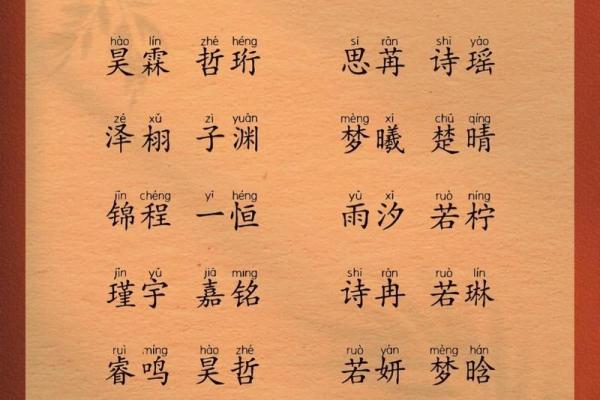 hào lín zhé héng sī rǎn shī yáo
昊霖 哲珩 思苒 诗瑶
zé xǔ zì yuān mèng xī chǔ qíng
泽栩 子渊 梦曦 楚晴
jǐn chéng yī héng yǔ xī ruò níng
锦程 一恒 雨汐 若柠
jǐn yǔ jiā míng shī rǎn ruò lín
瑾宇 嘉铭 诗冉 若琳
ruì míng hào zhé ruò yán mèng hán
睿鸣 昊哲 若妍 梦晗